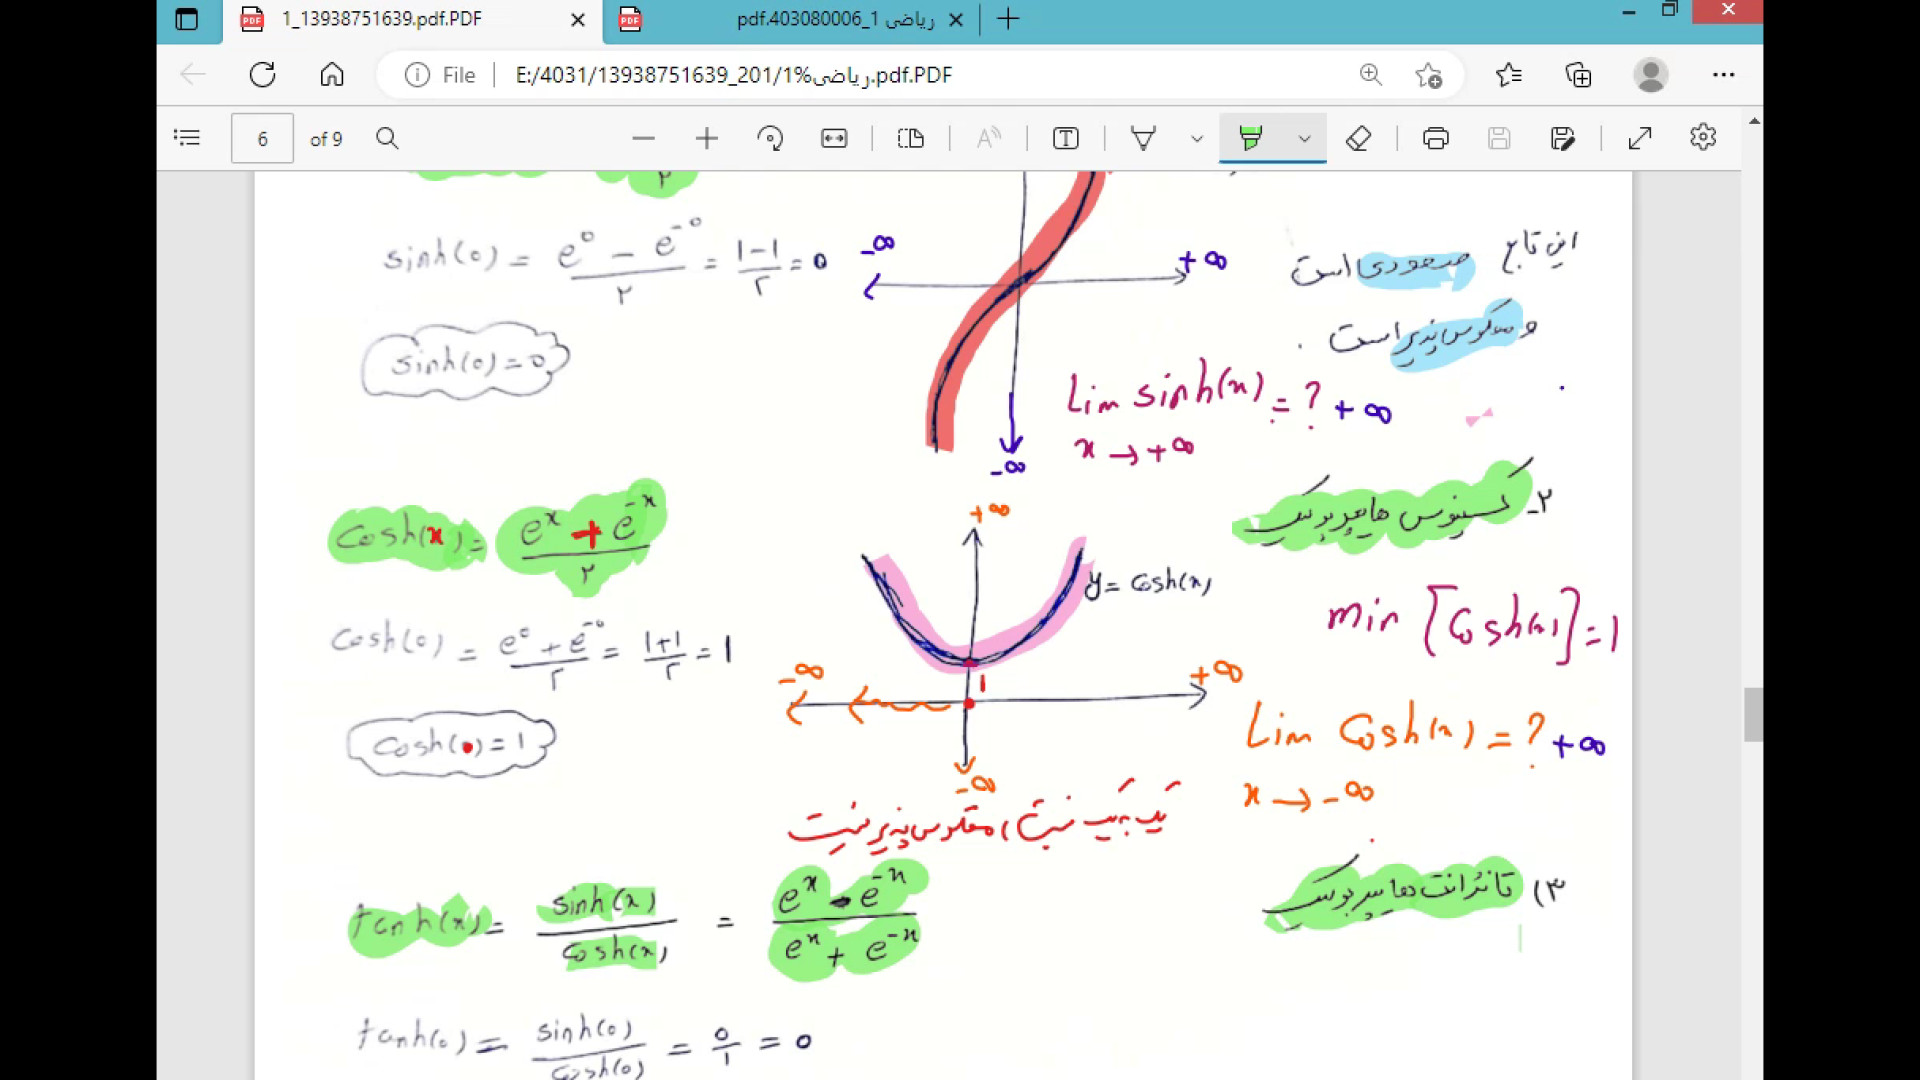 1_13938751639.pdf.PDF
pdf.403080006_1 ریاضی
File
E:/4031/13938751639_201/1%ریاضی.pdf.PDF
6 of 9
۲
sinh(0) = e⁰ - e⁻⁰ / ۲ = 1-1 / ۲ = 0
-∞ +∞
این تابع صعودی است
و معکوس پذیر است .
sinh(0)=0
-∞
Lim sinh(x) = ? +∞
x → +∞
۲- کسینوس هایپربولیک
Cosh(x) = eˣ + e⁻ˣ / ۲
+∞
y = Cosh(x)
min [Cosh(x)] = 1
Cosh(0) = e⁰ + e⁻⁰ / ۲ = 1+1 / ۲ = 1
-∞ 1 +∞
-∞
Cosh(0) = 1
Lim Cosh(x) = ? +∞
x → -∞
یک به یک نیست ، معکوس پذیر نیست
۳) تانژانت هایپربولیک
tanh(x) = sinh(x) / Cosh(x) = eˣ - e⁻ˣ / eˣ + e⁻ˣ
tanh(0) = sinh(0) / Cosh(0) = 0/1 = 0